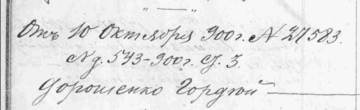 Отъ 10 Октября 900г. № 27583.
№ д. 543-900г. ст. 3.
Дорошенко Гордѣй